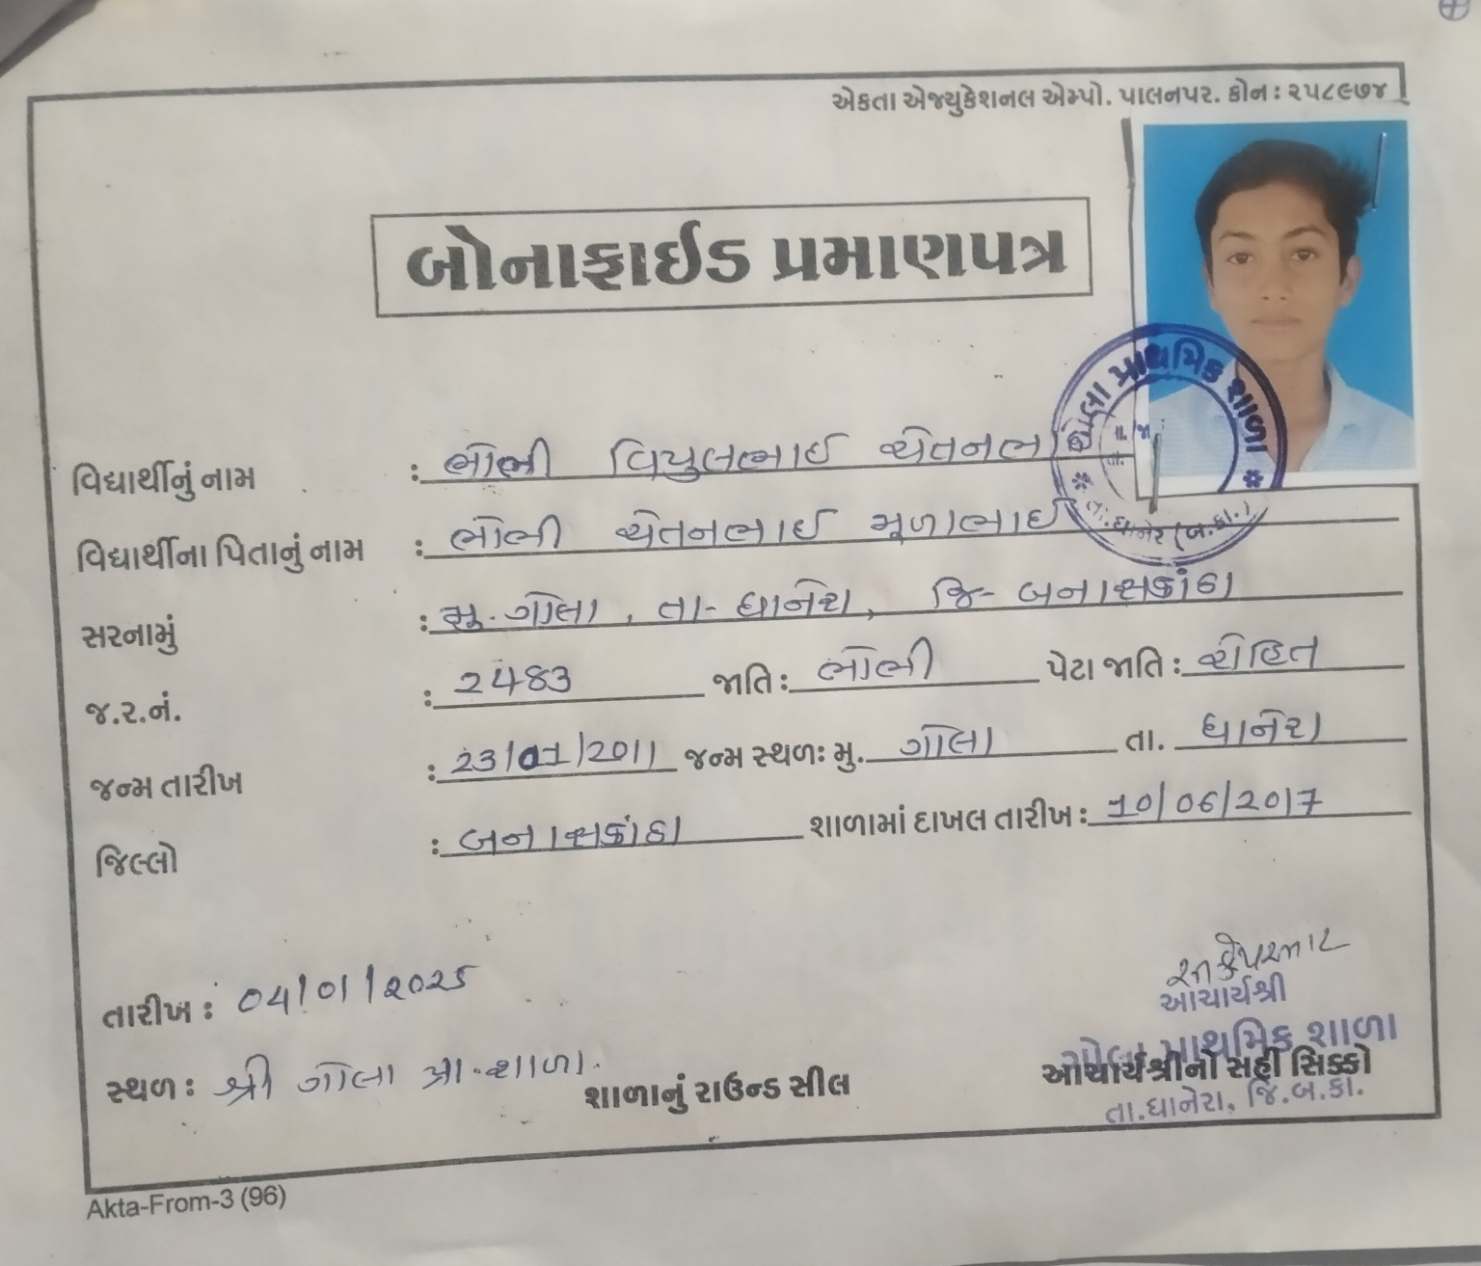 એકતા એજ્યુકેશનલ એમ્પો. પાલનપર. ફોન : ૨૫૮૯૭૪
બોનાફાઈડ પ્રમાણપત્ર
વિદ્યાર્થીનું નામ : ભીલ વિપુલભાઈ ચેતનભા
વિદ્યાર્થીના પિતાનું નામ : ચેતનભાઈ મૂળાભાઈ
સરનામું : મુ. ગોલા, તા- ધાનેરા, જિ- બનાસકાંઠા
જ.ર.નં. : 2483 જાતિ : પેટા જાતિ : રોહિત
જન્મ તારીખ : 23/01/2011 જન્મ સ્થળઃ મુ. ગોલા તા. ધાનેરા
જિલ્લો : બનાસકાંઠા શાળામાં દાખલ તારીખ : 10/06/2017
ગોલા પ્રાથમિક શાળા
તા. ધાનેરા (બ.કા.)
તારીખ : 04/01/2025
સ્થળ : શ્રી ગોલા પ્રા. શાળા.
શાળાનું રાઉન્ડ સીલ
આચાર્યશ્રી
ગોલા પ્રાથમિક શાળા
આચાર્યશ્રીનો સહી સિક્કો
તા.ધાનેરા, જિ.બ.કા.
Akta-From-3 (96)